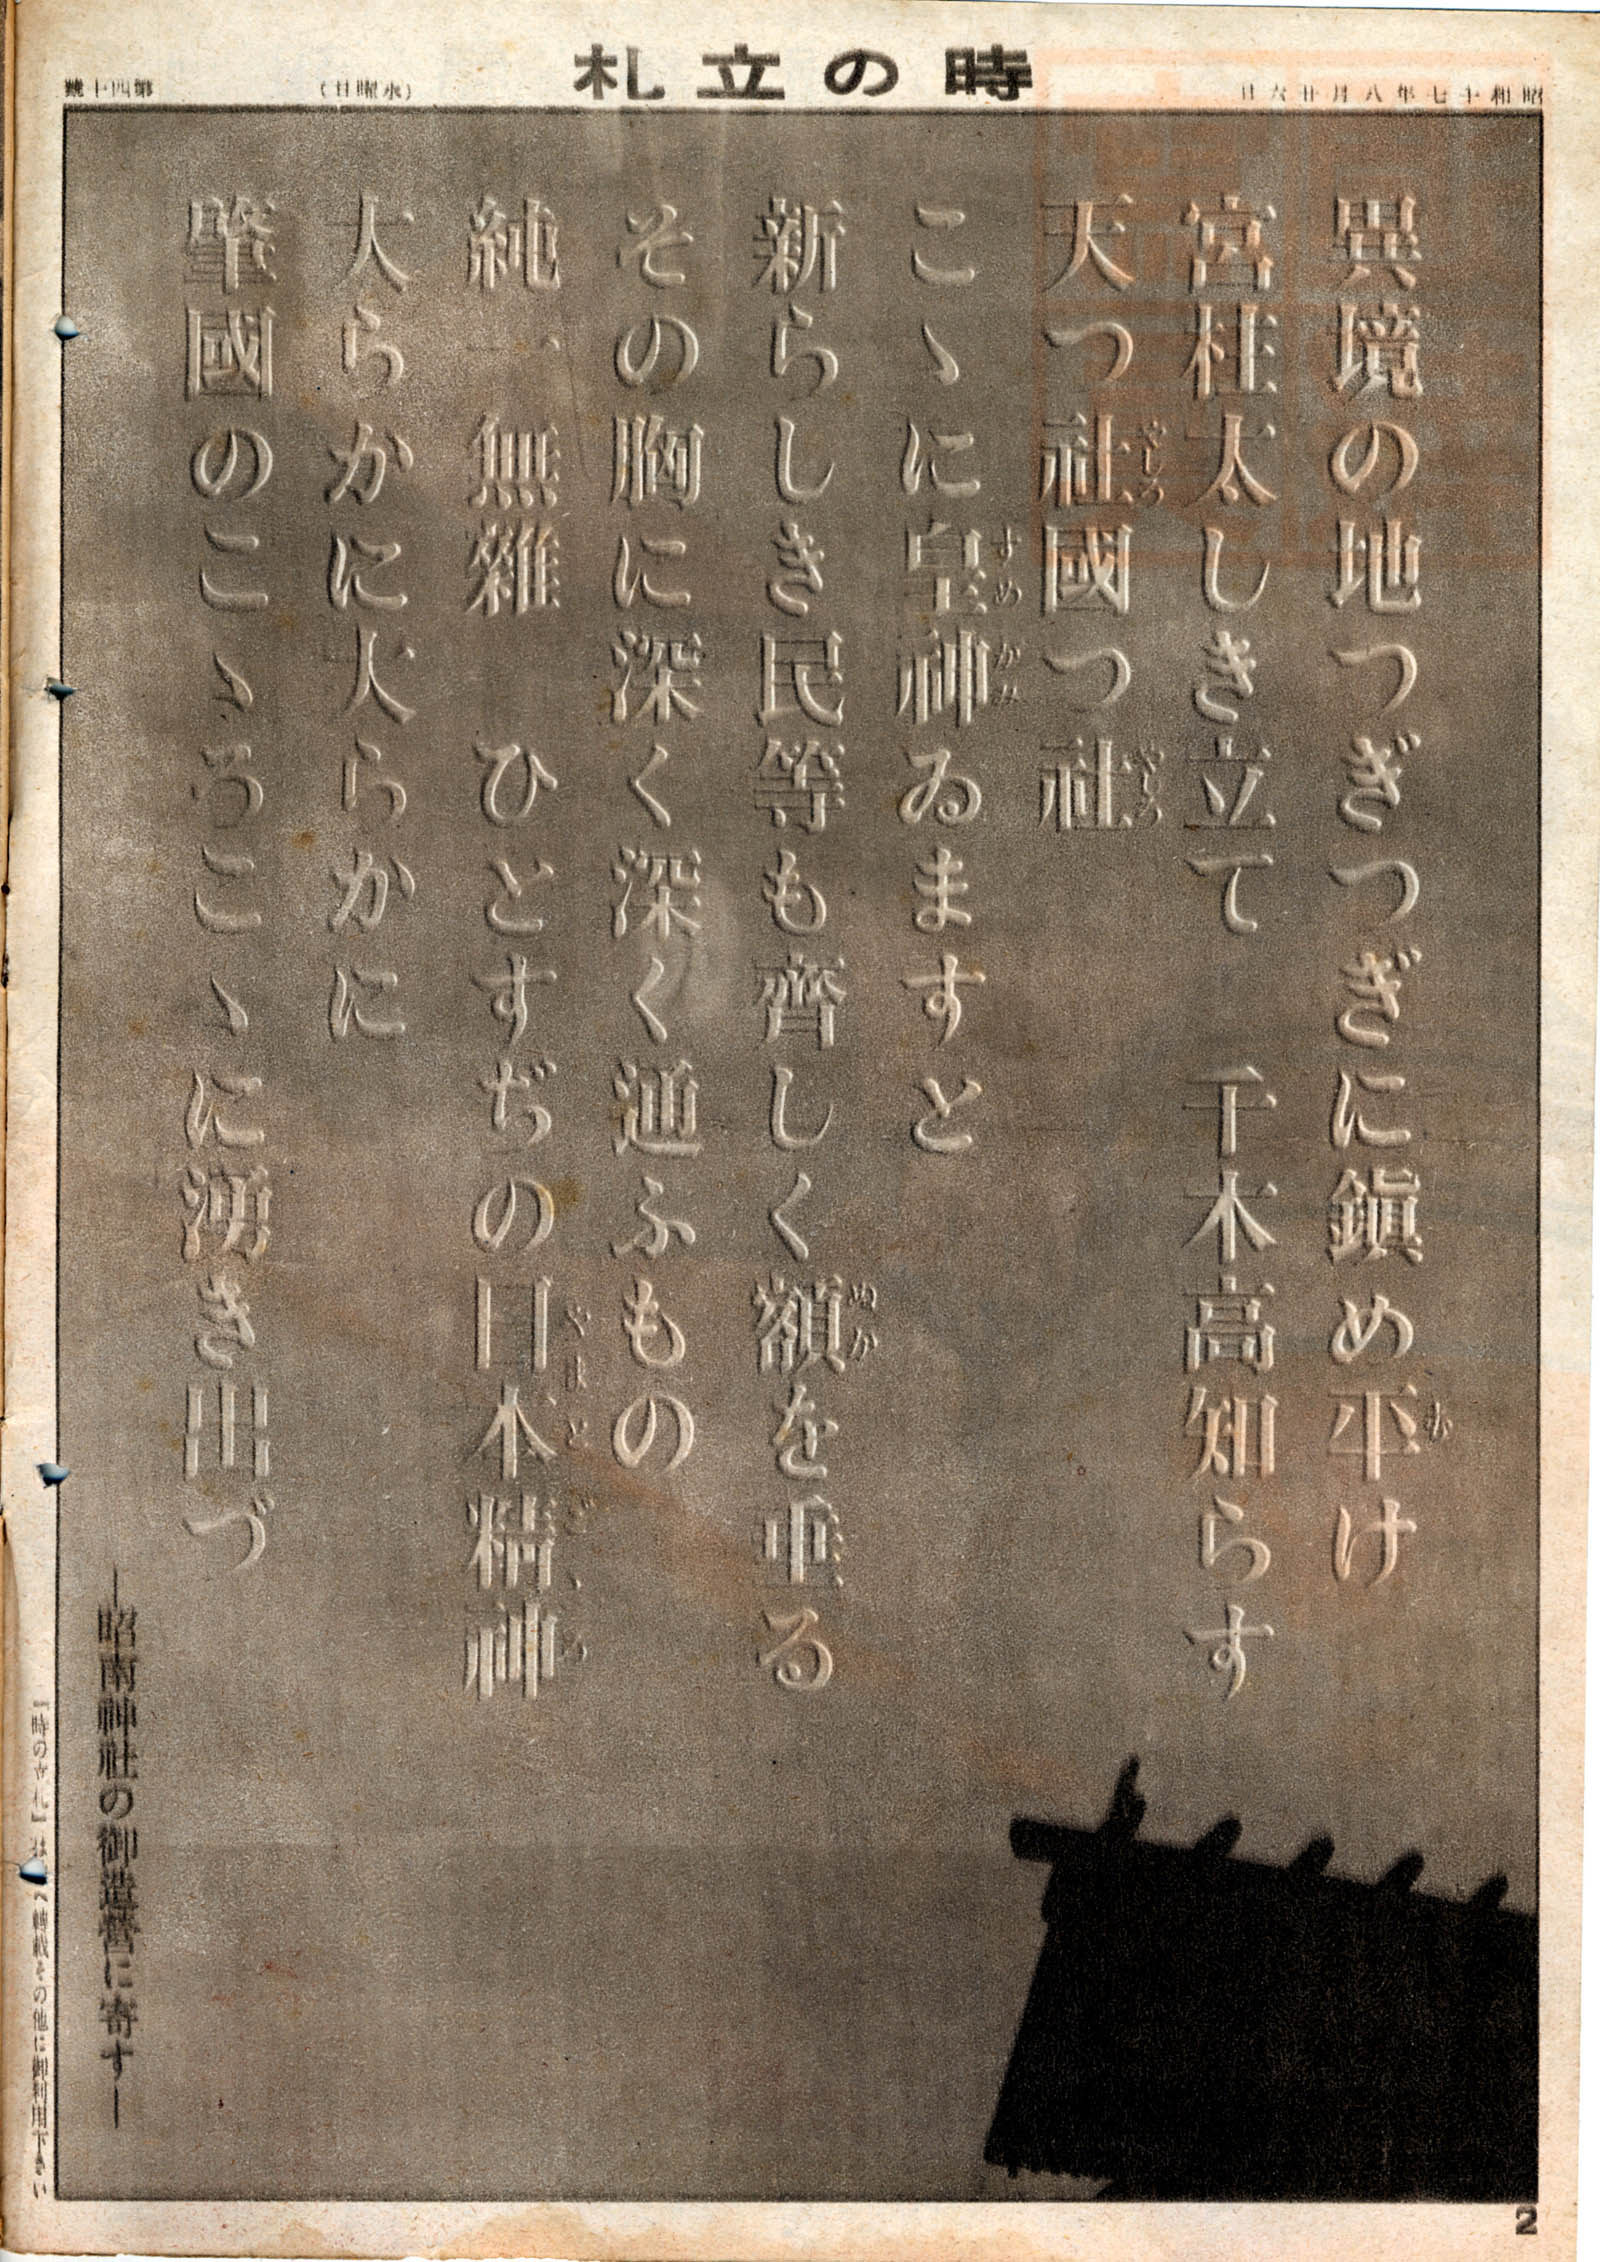 時の立札
昭和十七年八月廿六日
(水曜日)
第四十號
異境の地つぎつぎに鎭め平け
宮柱太しき立て　千木高知らす
天つ社國つ社
こゝに皇神ゐますと
新らしき民等も齊しく額を垂る
その胸に深く深く通ふもの
純一無雜　ひとすぢの日本精神
大らかに大らかに
肇國のこゝろこゝに湧き出づ
―昭南神社の御造營に寄す―
『時の立札』は
轉載その他に御利用下さい
2